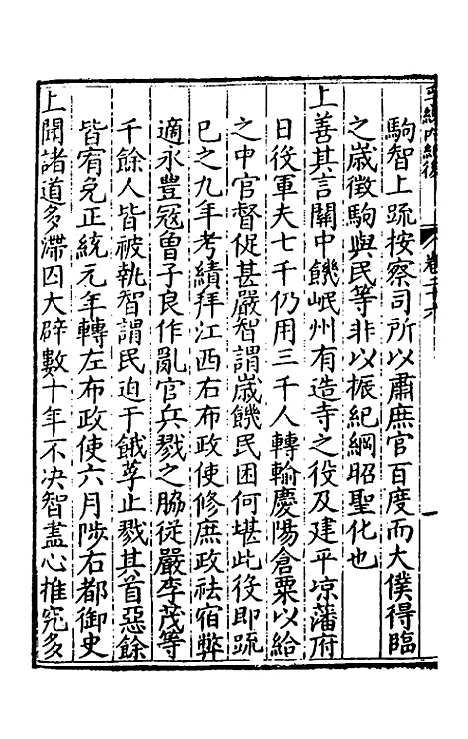 駒智上疏按察司所以肅庶官百度而大僕得臨
之歲徵駒與民等非以振紀綱昭聖化也
上善其言關中饑岷州有造寺之役及建平凉藩府
日後軍夫七千仍用三千人轉輸慶陽倉粟以給
之中官督促甚嚴智謂歲饑民困何堪此役即疏
已之九年考績拜江西右布政使修庶政祛宿弊
適永豐冦曾子良作亂官兵戮之脇從嚴李茂等
千餘人皆被執智謂民迫于餓莩止戮其首惡餘
皆宥免正統元年轉左布政使六月陟右都御史
上聞諸道多滯囚大辟數十年不决智盡心推究多
卷二十六
一